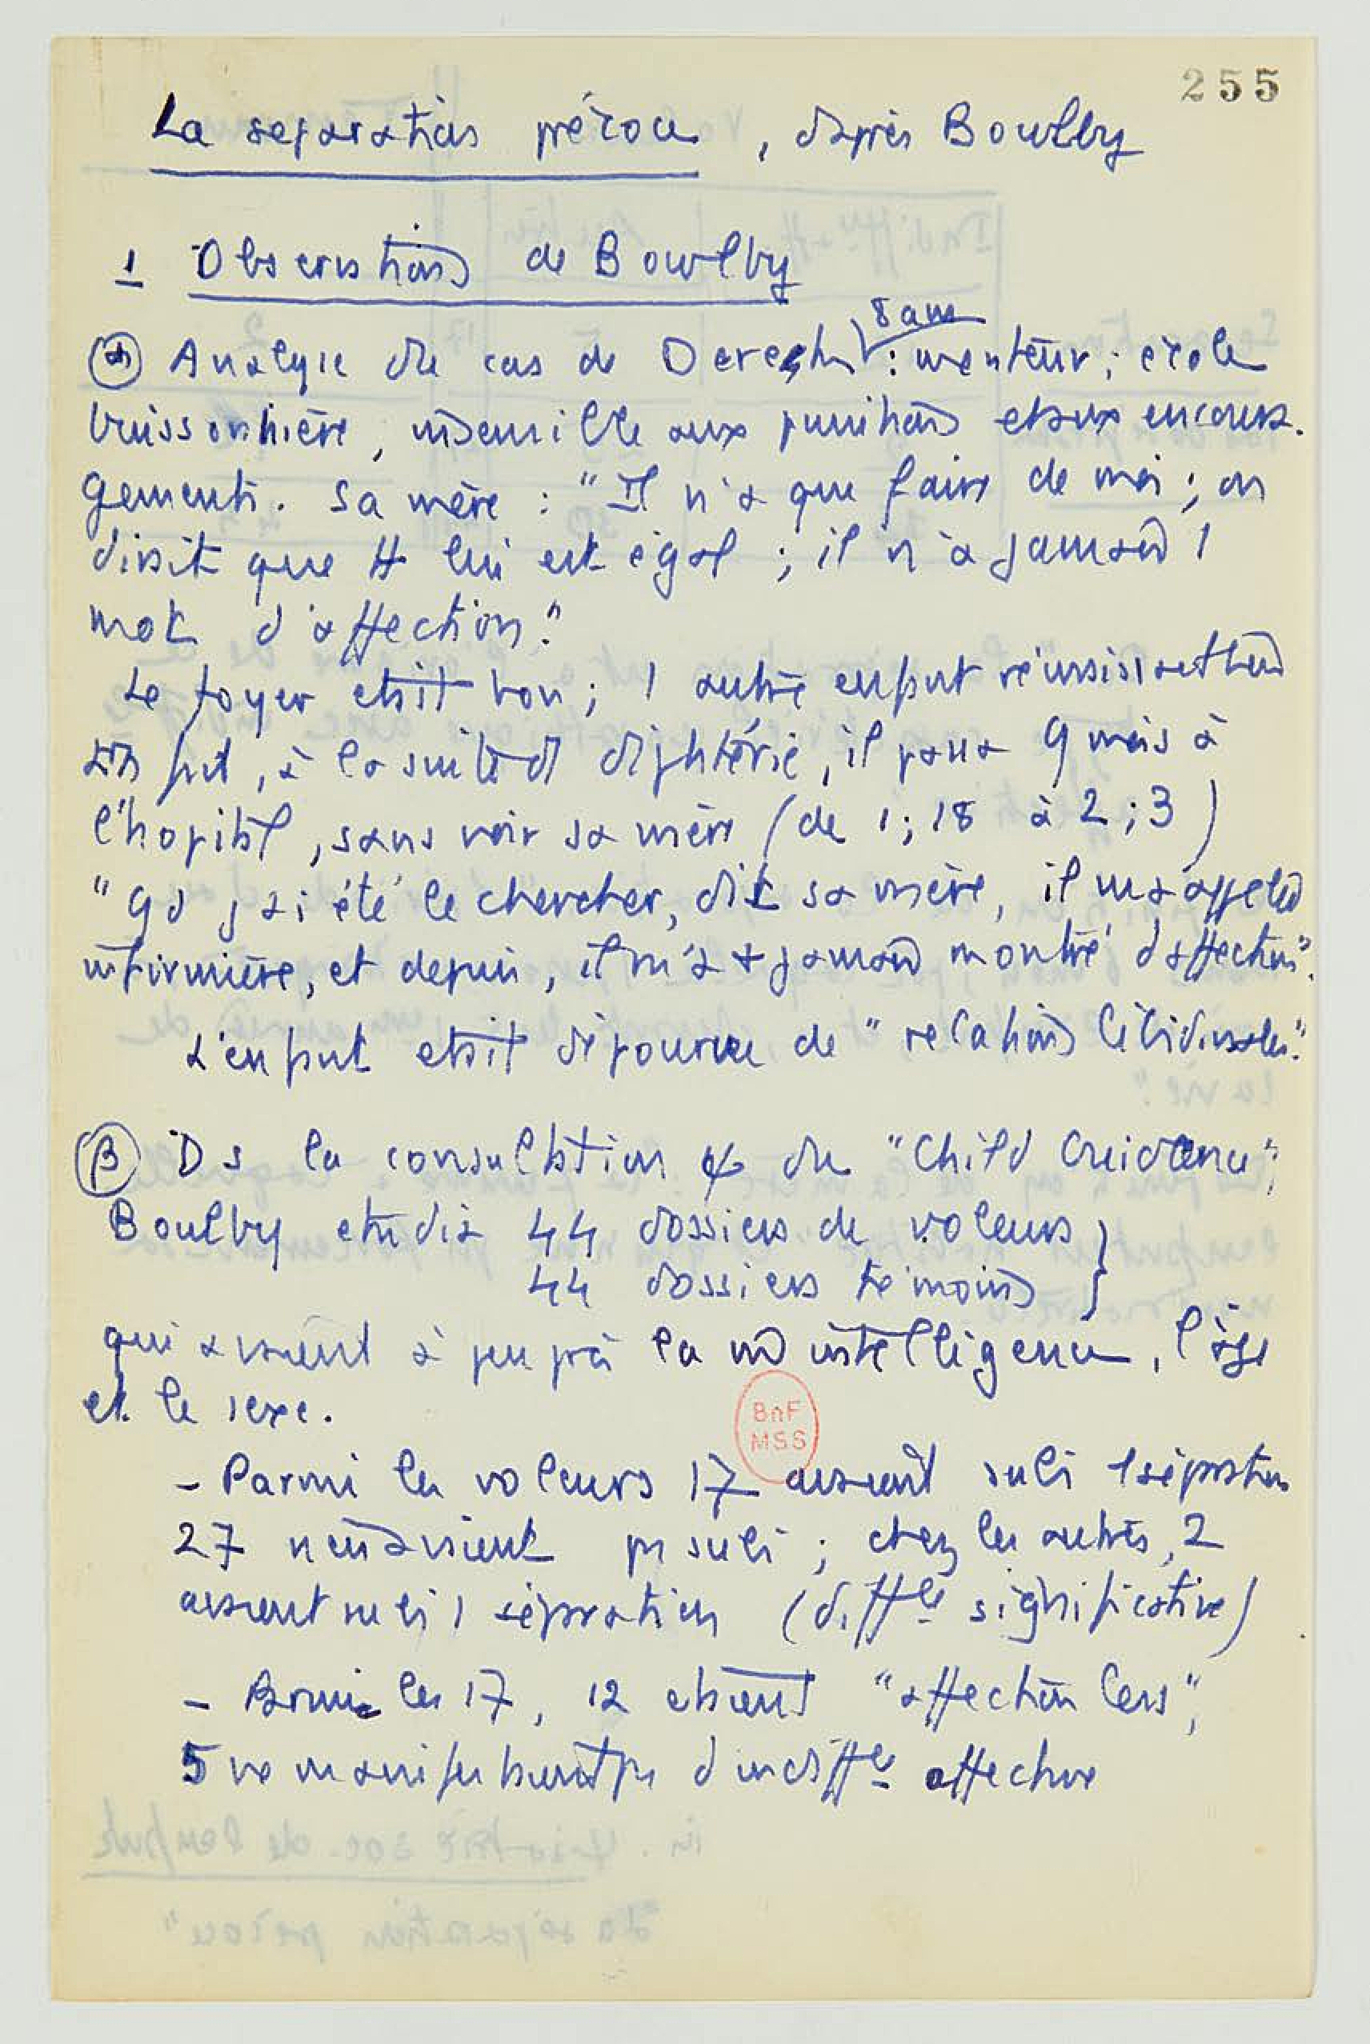 255
La separation précoce, d'après Bowlby
1 Observations de Bowlby
α Analyse du cas de Dereck 8 ans : menteur ; école
buissonnière, insensible aux punitions et aux encoura-
gements. Sa mère : "Il n'a que faire de moi ; on
dirait que tt lui est égal ; il n'a jamais 1
mot d'affection."
Le foyer était bon ; 1 autre enfant réussissait bien
, à la suite d diphtérie, il passa 9 mois à
l'hopital, sans voir sa mère (de 1 ; 18 à 2 ; 3)
"Qd j'ai été le chercher, dit sa mère, il m'a appelée
infirmière, et depuis, il m'a jamais montré d'affection".
L'enfant était dépourvu de "relations libidinales".
β Ds la consultation du "Child Guidance",
Boulby etudia 44 dossiers de voleurs
44 dossiers témoins
qui avaient à peu près la m intelligence, l'âge
et le sexe.
- Parmi les voleurs 17 avaient subi 1 séparation
27 n'en avaient ps subi ; chez les autres, 2
avaient subi 1 séparation (diffce significative)
- Parmi les 17, 12 étaient "affectionless",
5 ne manifestaient ps d'indiffce affective
BnF
MSS